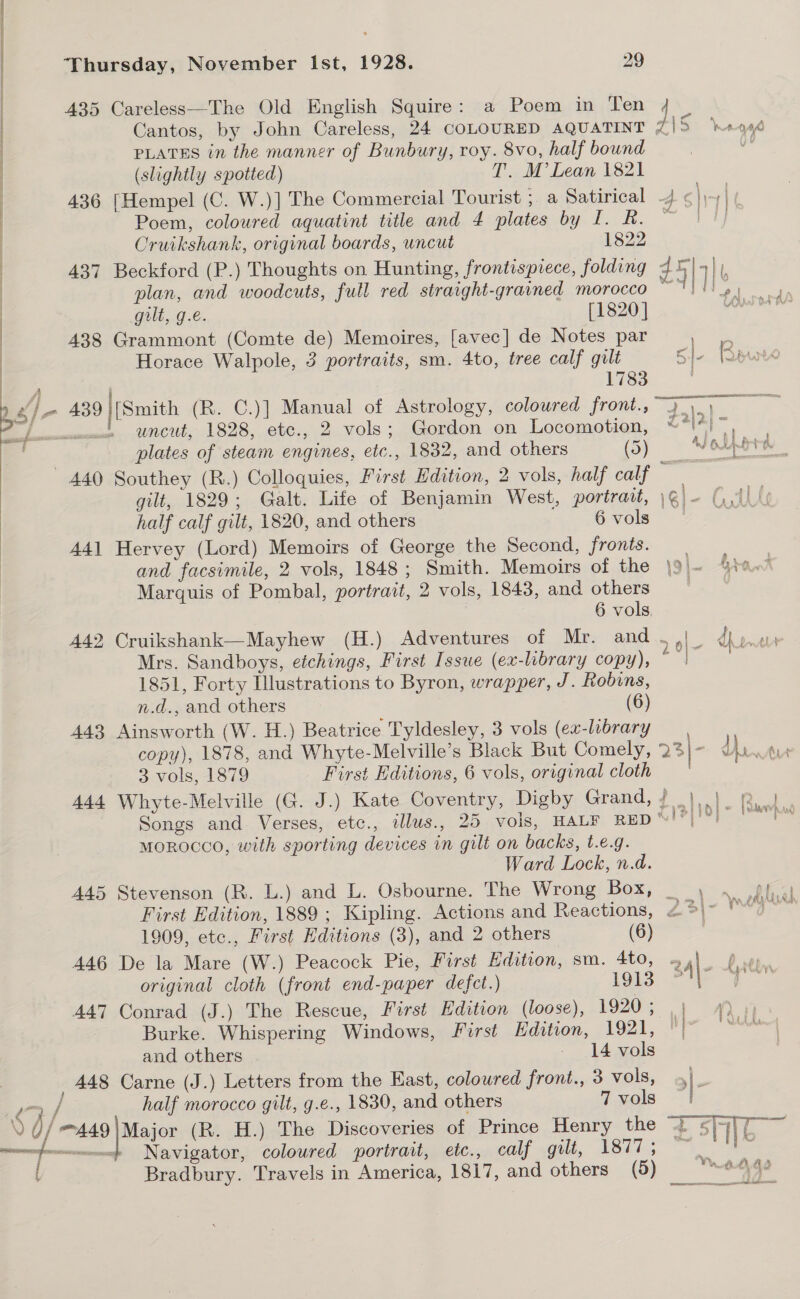 Thursday, November 1st, 1928. 29
435 Careless—The Old English Squire: a Poem in Ten
Cantos, by John Careless, 24 COLOURED AQUATINT
PLATES in the manner of Bunbury, roy. 8vo, half bound
(slightly spotted) T. M'Lean 1821
436 [Hempel (C. W.)] The Commercial Tourist; a Satirical
Poem, coloured aquatint title and 4 plates by I. R.
Cruikshank, original boards, uncut 1822
437 Beckford (P.) Thoughts on Hunting, frontispiece, folding
plan, and woodcuts, full red straight-grained morocco
gilt, g.e. [1820]
438 Grammont (Comte de) Memoires, [avec] de Notes par
Horace Walpole, 3 portraits, sm. 4to, tree calf gilt 5/-
1783
439 [Smith (R. C.)] Manual of Astrology, coloured front.,
uncut, 1828, etc., 2 vols; Gordon on Locomotion,
plates of steam engines, etc., 1832, and others (5)
440 Southey (R.) Colloquies, First Edition, 2 vols, half calf
gilt, 1829; Galt. Life of Benjamin West, portrait, 16/-
half calf gilt, 1820, and others 6 vols
441 Hervey (Lord) Memoirs of George the Second, fronts.
and facsimile, 2 vols, 1848; Smith. Memoirs of the 19/-
Marquis of Pombal, portrait, 2 vols, 1843, and others
6 vols
442 Cruikshank—Mayhew (H.) Adventures of Mr. and
Mrs. Sandboys, etchings, First Issue (ex-library copy),
1851, Forty Illustrations to Byron, wrapper, J. Robins,
n.d., and others (6)
443 Ainsworth (W. H.) Beatrice Tyldesley, 3 vols (ex-library
copy), 1878, and Whyte-Melville's Black But Comely, 23/-
3 vols, 1879 First Editions, 6 vols, original cloth
444 Whyte-Melville (G. J.) Kate Coventry, Digby Grand,
Songs and Verses, etc., illus., 25 vols, HALF RED
MOROCCO, with sporting devices in gilt on backs, t.e.g.
Ward Lock, n.d.
445 Stevenson (R. L.) and L. Osbourne. The Wrong Box,
First Edition, 1889; Kipling. Actions and Reactions,
1909, etc., First Editions (3), and 2 others (6)
446 De la Mare (W.) Peacock Pie, First Edition, sm. 4to,
original cloth (front end-paper defct.) 1913
447 Conrad (J.) The Rescue, First Edition (loose), 1920;
Burke. Whispering Windows, First Edition, 1921,
and others 14 vols
448 Carne (J.) Letters from the East, coloured front., 3 vols,
half morocco gilt, g.e., 1830, and others 7 vols
449 Major (R. H.) The Discoveries of Prince Henry the
Navigator, coloured portrait, etc., calf gilt, 1877;
Bradbury. Travels in America, 1817, and others (5)